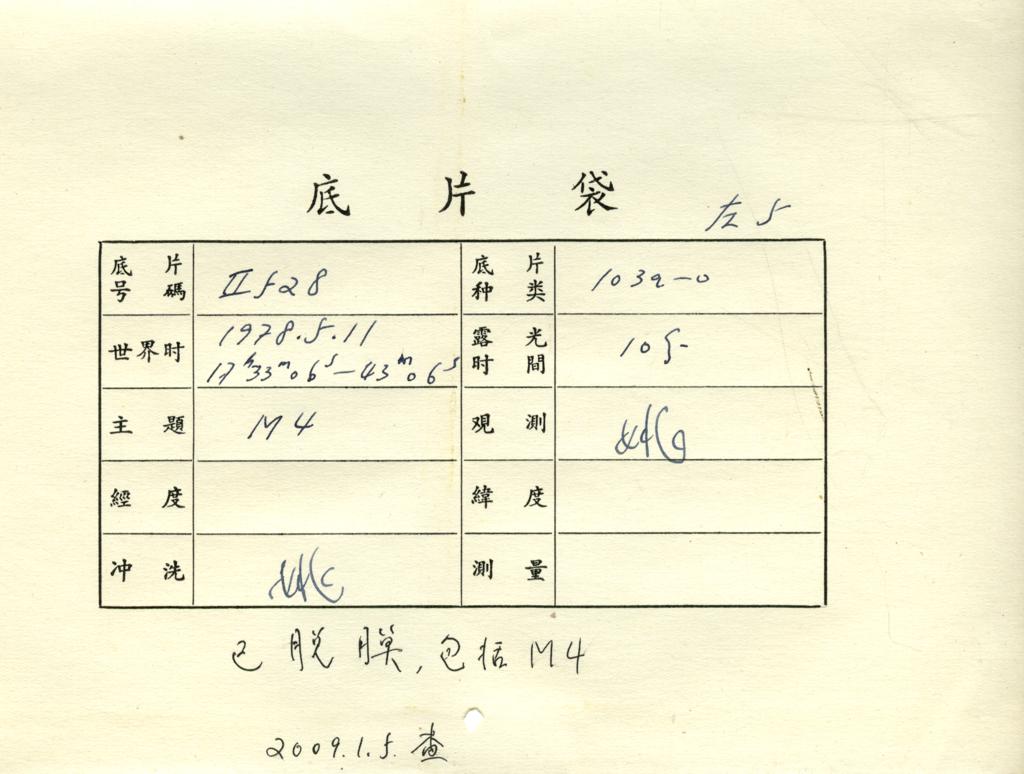 底 片 袋
左 5
底 片 号 碼
II 528
底 片 种 类
103a-O
世 界 时
1978.5.11
17ʰ33ᵐ06ˢ-43ᵐ06ˢ
露 光 时 間
10分
主 題
M4
观 测
經 度
緯 度
冲 洗
測 量
已脱膜,包括M4
2009.1.5.查